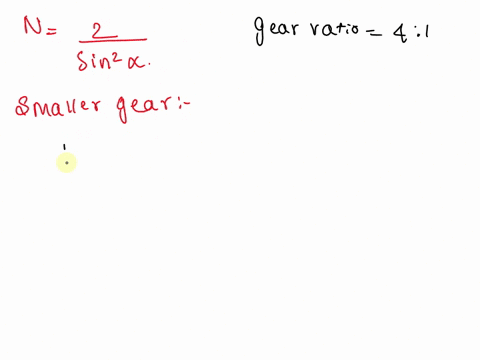 N = 2 / Sin²α.
gear ratio = 4:1
Smaller gear:-